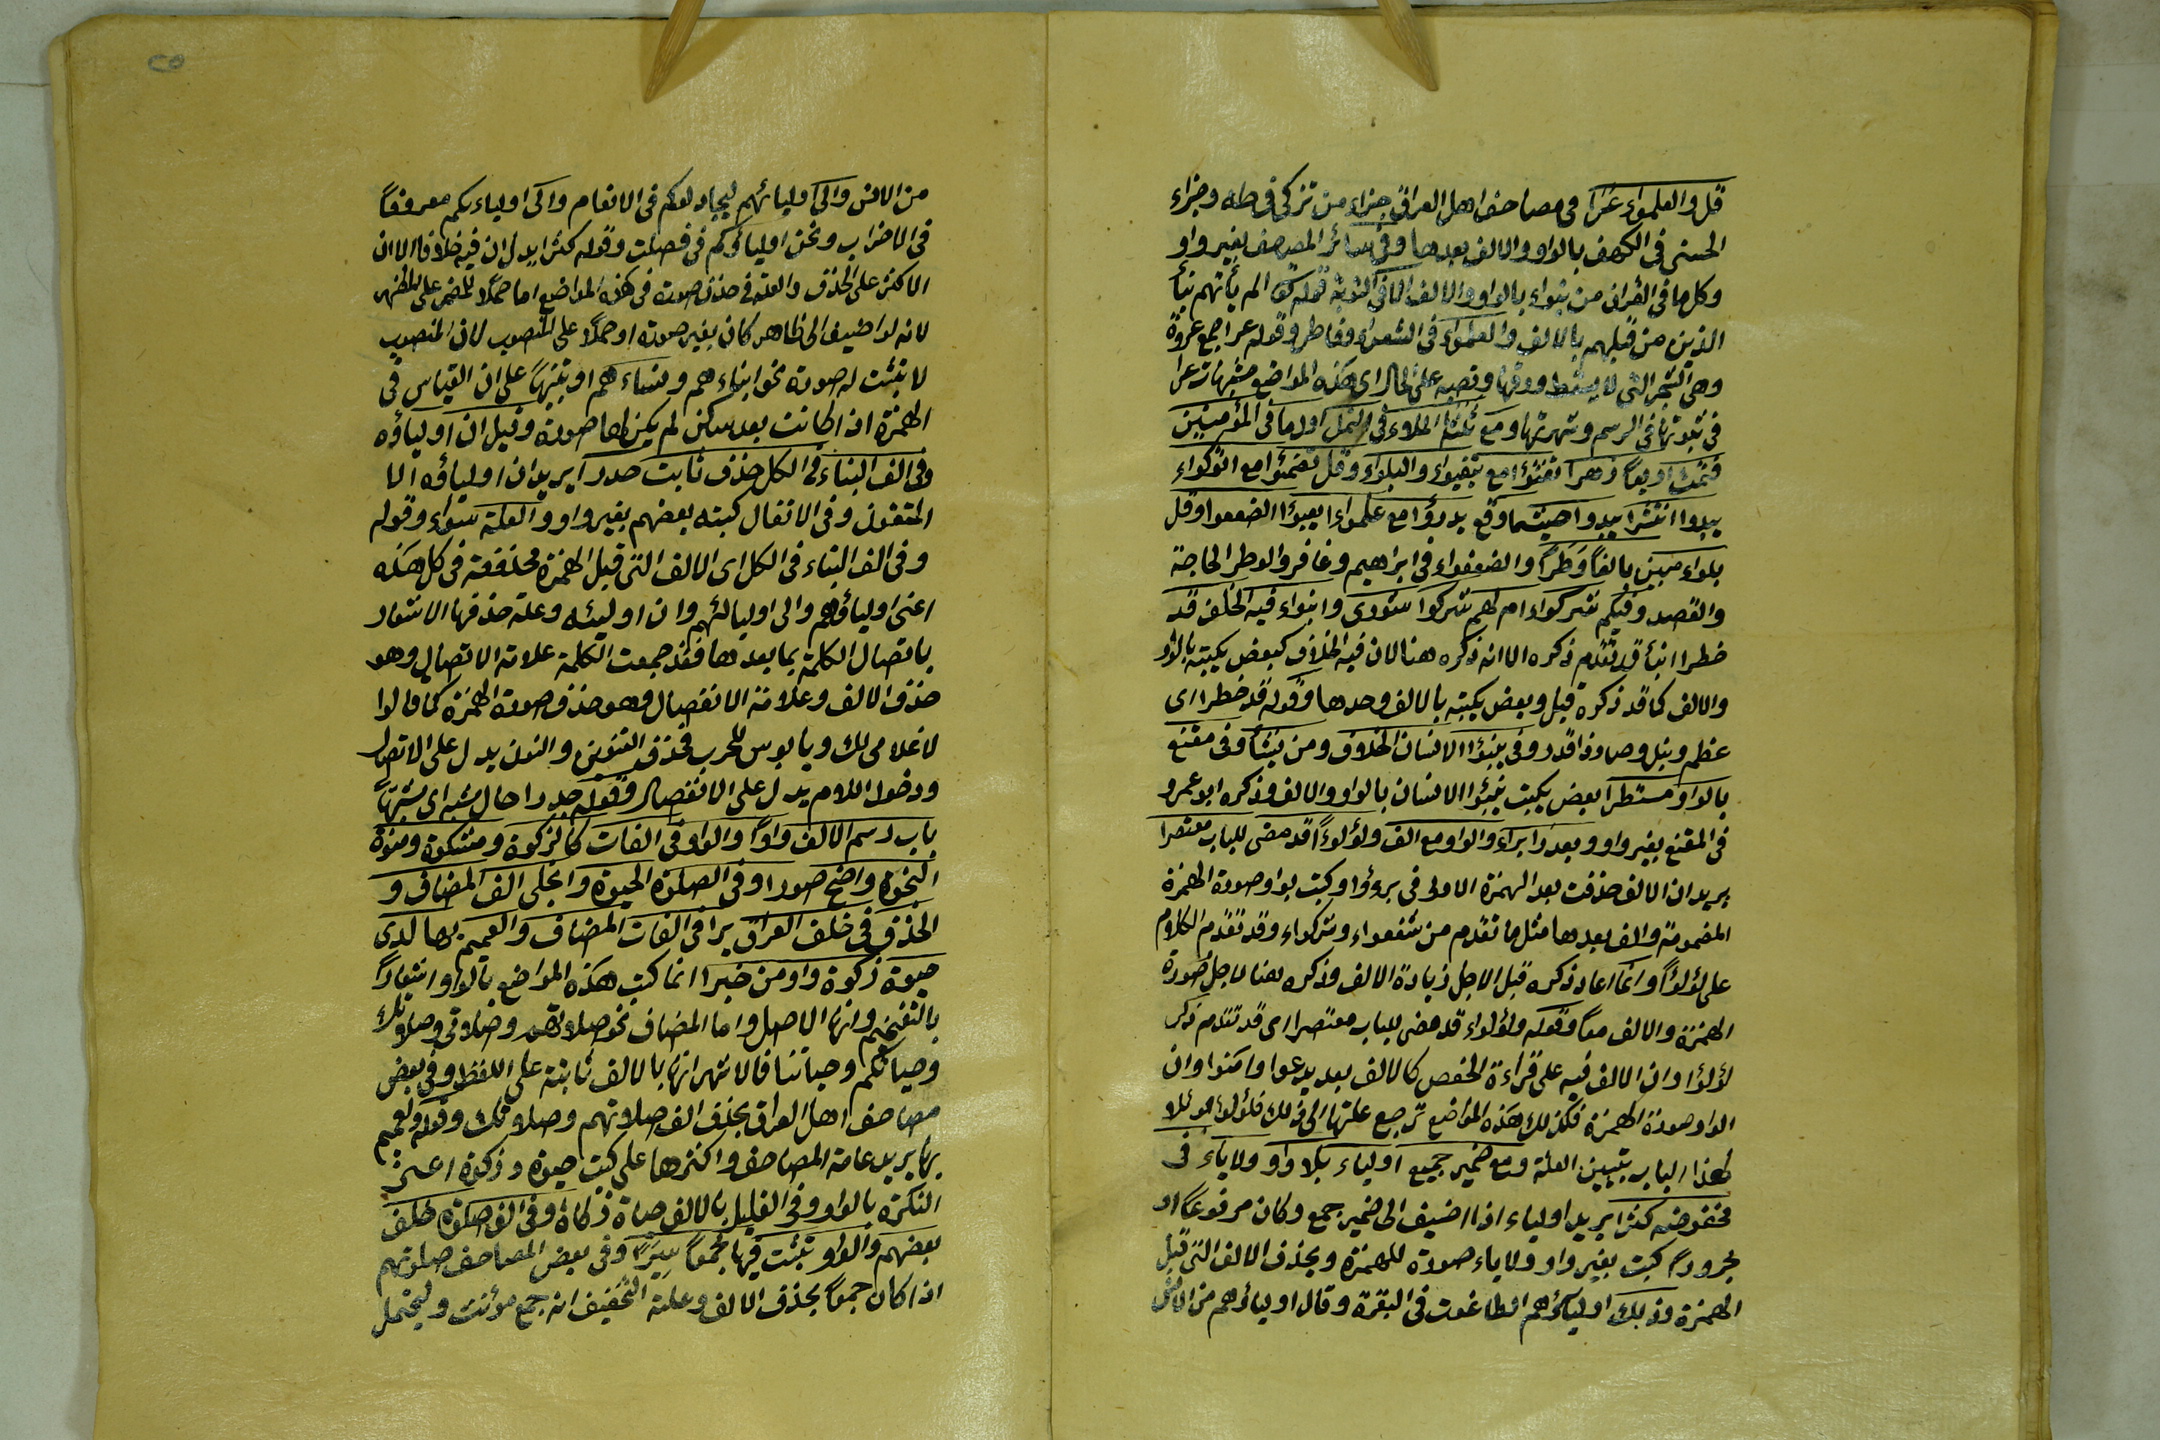 قل والعلمواء عرا فى مصاحف اهل العراق جزاء من تزكى فى طه وجزاء
الحسنى فى الكهف بالواو والالف بعدها وفى سائر المصحف بغير واو
وكل ما فى القران من نبواء بالواو والالف الا فى التوبة قوله تع الم يأتهم نبأ
الذين من قبلهم بالالف والعلمواء فى الشعراء وفاطر وقوله عرا جمع عروة
وهى الشجر التى لا يسقط ورقها ونصبه على الحال اى هذه المواضع مشبهات عرا
فى ثبوتها فى الرسم وشهرتها ومع ثلاثها الملاوء فى النمل اولا ما فى المؤمنين
فتمت اربعا زهرا تفتؤا مع يتفيواء والبلواء وقل تظمئوا مع اتوكواء
يبدوا انتشرا يبدوا حيثما وقع يدرؤا مع علمواء يعبؤا الضعفوا وقل
بلواء مبين بالغا وطرا والضعفواء فى ابراهيم وغافر والوطر الحاجة
والقصد وفيكم شركواء ام لهم شركوا شورى وانبواء فيه الخلف قد
خطرا انبأ قد تقدم ذكره الا انه ذكره هنا لان فيه الخلاف كبعض يكتبه بالواو
والالف كما قد ذكره قبل وبعض يكتبه بالالف وحدها وقوله قد خطرا اى
عظم ونبل وصار ذا قدر وفى ينبؤا الانسان الخلاف ومن ينشأ وفى مقنع
بالواو مستطرا بعض يكتب ينبئوا الانسان بالواو والالف وذكره ابو عمرو
فى المقنع بغير واو وبعد را براء والواو مع الف ولؤلوءا قد مضى للباب معتصرا
يريد ان الالف حذفت بعد الهمزة الاولى فى برءؤا وكتب بواو صورة الهمزة
المضمومة والف بعدها مثل ما تقدم من شفعواء وشركواء وقد تقدم الكلام
على لؤلؤا وانما اعاد ذكره قبل الاجل زيادة الالف وذكره هنا لاجل صورة
الهمزة والالف معا وقوله ولؤلواء قد مضى للباب معتصرا اى قد تقدم ذكر
لؤلؤا وان الالف فيه على قراءة الخفص كالالف بعد يدعوا وامنوا وان
الواو صورة الهمزة فكذلك هذه المواضع ترجع علتها الى ذلك فلؤلوء موئلا
لهذا الباب بتبيين العلة ومع ضمير جميع اولياء بلا واو ولا ياء فى
مخفوضه كثرا يريد اولياء اذا اضيف الى ضمير جمع وكان مرفوعا او
مجرورا كتب بغير واو ولا ياء صورة للهمزة وبحذف الالف التى قبل
الهمزة وذلك اولياؤهم الطاغوت فى البقرة وقال اولياؤهم من الانس
من الانس والى اوليائهم ليجادلوكم فى الانعام والى اولياءكم معروفا
فى الاحزاب ونحن اولياؤكم فى فصلت وقوله كثرا يدل ان فيه خلافا الا ان
الاكثر على الحذف والعلة فى حذف صورته فى هذه المواضع اما حملا للمضمر على المظهر
لانه لو اضيف الى ظاهر كان بغير صورة او حملا على المنصوب لان المنصوب
لا تثبت له صورة نحو ابناءهم ونساءهم او تنبيها على ان القياس فى
الهمزة اذا كانت بعد ساكن لم يكن لها صورة وقيل ان اولياؤه
وفى الف البناء فى الكل حذف ثابت صدرا يريد ان اولياؤه الا
المتقون وفى الانفال كتبه بعضهم بغير واو والعلة سواء وقوله
وفى الف البناء فى الكل اى الالف التى قبل الهمزة محذوفة فى كل هذه
اعنى اولياؤهم والى اوليائهم وان اوليئه وعلة حذفها الاشعار
باتصال الكلمة بما بعدها فقد جمعت الكلمة علامة الاتصال وهو
حذف الالف وعلامة الانفصال وهو حذف صورة الهمزة كما قالوا
لا غلامى لك ويا بوس للحرب فحذف التنوين والنون يدل على الاتصال
ودخول اللام يدل على الانفصال وقوله جدرا حال مشبه اى مشبها
باب رسم الالف واوا والواو فى الفات كالزكوة ومشكوة ومنوة
النجوة واضح صورا وفى الصلوة الحيوة وانجلى الف المضاف و
الحذف فى خلف العراق يرا فى الفات المضاف والعميم بها لدى
حيوة زكوة واو من خبرا انما كتب هذه المواضع بالواو اشعارا
بالتفخيم وانها الاصل واما المضاف نحو صلاتهم وصلاتى وصلاتك
وحياتكم وحياتنا فالاشهر انها بالالف ثابتة على اللفظ وفى بعض
مصاحف اهل العراق بحذف الف صلاتهم وصلاتك وقوله والعميم
بها يريد عامة المصاحف واكثرها على كتب حيوة وزكوة اعنى
النكرة بالواو وفى القليل بالالف حياة زكاة وفى الف صلوة خلف
بعضهم والواو تثبت فيها مجمعا سيرا وفى بعض المصاحف صلوتهم
اذا كان جمعا بحذف الالف وعلته التخفيف انه جمع مؤنث وليحتمل